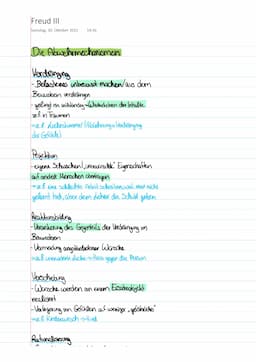 Freud III
Sonntag, 30. Oktober 2022 14:36
Die Abwehrmechanismen
Verdrängung
- Belastendes unbewusst machen/aus dem
Bewusstsein verdrängen
- gelingt es vollständig → der Inhalte
z.B. in Träumen
→ z.B.
der Gefühle)
Projektion
- eigene Schwächen/„unerwünschte“ Eigenschaften
auf andere Menschen übertragen
→ z.B. eine schlechte Arbeit schreiben, weil man nicht
gelernt hat, aber dem Lehrer die Schuld geben
Reaktionsbildung
- Verstärkung des Gegenteils der Verdrängung im
Bewusstsein
- Vermeidung Wünsche
→ z.B. Liebe → Hass gegen die Person
Verschiebung
- Wünsche werden an einem Ersatzobjekt
realisiert
- Verlagerung von Gefühlen auf weniger „gefährliche“
→ z.B. Kinderwunsch → Hund
Rationalisierung